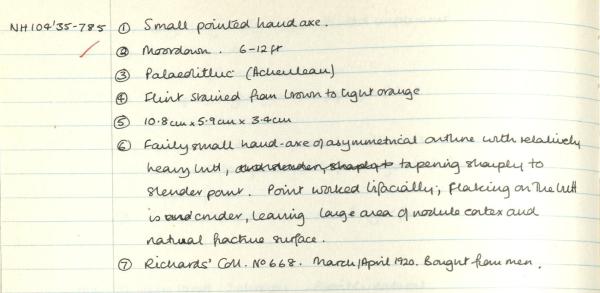 NH104'35-785 ① Small pointed handaxe.
② Moordown. 6-12ft
③ Palaeolithic (Acheulean)
④ Flint stained from brown to light orange
⑤ 10.8cm x 5.9cm x 3.4cm
⑥ Fairly small hand-axe of asymmetrical outline with relatively
heavy butt, and slender, sharply tapering sharply to
slender point. Point worked bifacially; flaking on the butt
is and cruder, leaving large area of nodule cortex and
natural fracture surface.
⑦ Richards' Coll. No 668. March/April 1920. Bought from men.